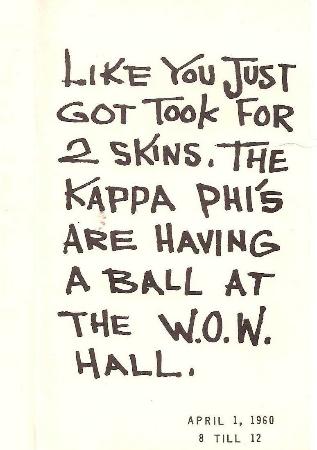 LIKE YOU JUST
GOT TOOK FOR
2 SKINS. THE
KAPPA PHI'S
ARE HAVING
A BALL AT
THE W.O.W.
HALL.
APRIL 1, 1960
8 TILL 12